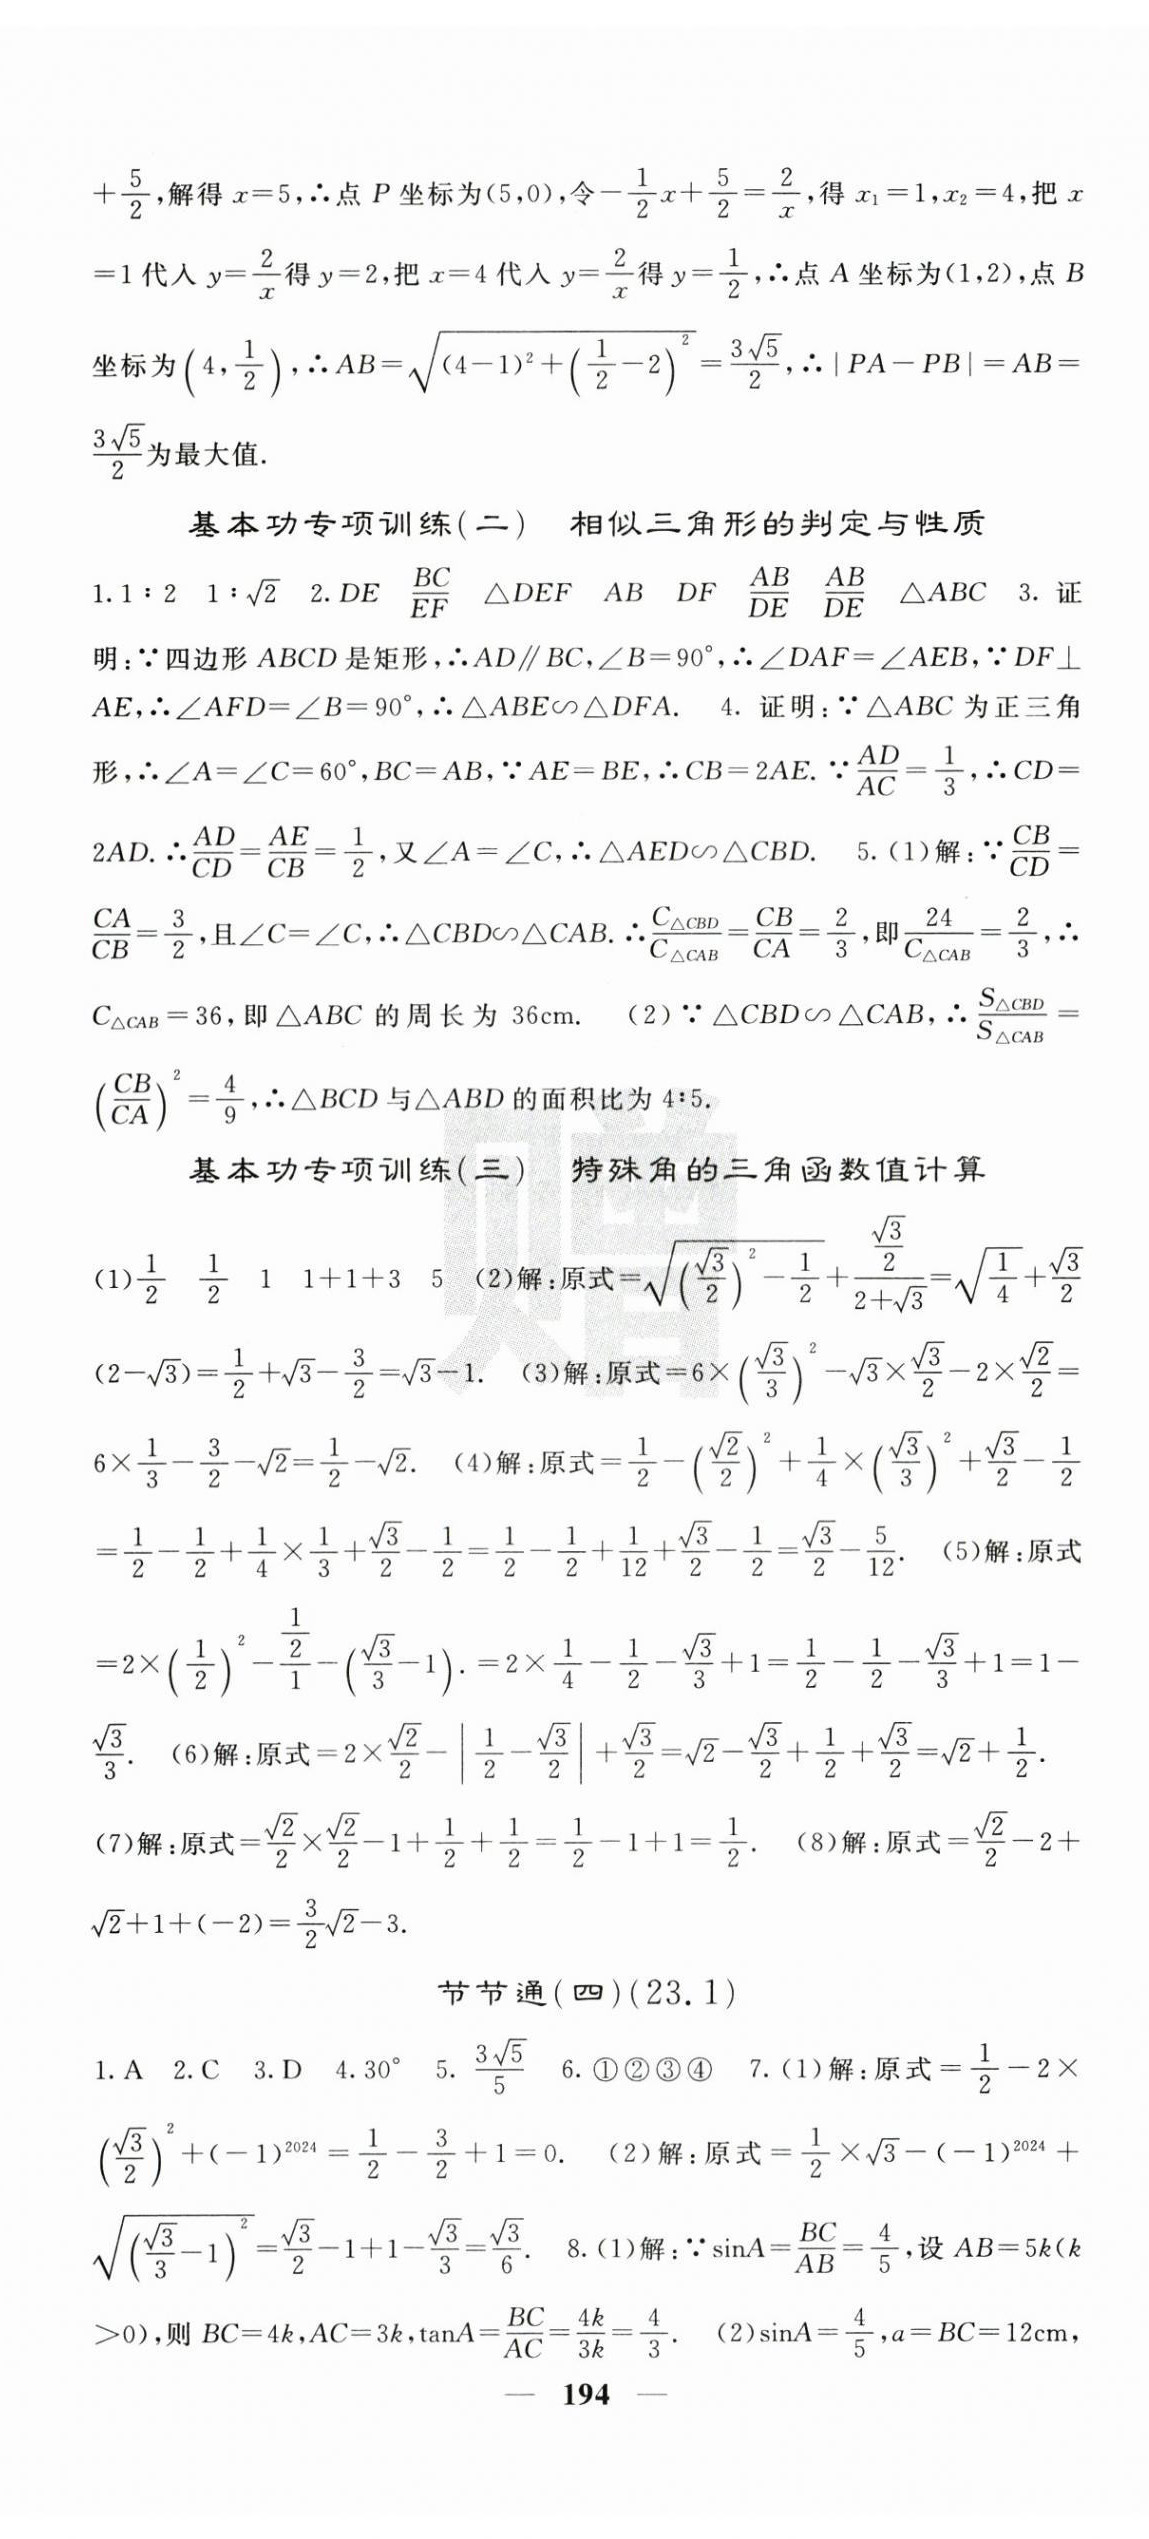 +5/2,解得 x=5,∴点 P 坐标为(5,0),令−1/2x+5/2=2/x,得 x₁=1,x₂=4,把 x
=1代入 y=2/x得 y=2,把 x=4 代入 y=2/x得 y=1/2,∴点 A 坐标为(1,2),点 B
坐标为(4,1/2),∴AB=√((4−1)²+(1/2−2)²)=3√5/2,∴|PA−PB|=AB=
3√5/2为最大值.
基本功专项训练(二) 相似三角形的判定与性质
1.1∶2 1∶√2 2.DE BC/EF △DEF AB DF AB/DE AB/DE △ABC 3. 证
明:∵四边形 ABCD 是矩形,∴AD∥BC,∠B=90°,∴∠DAF=∠AEB,∵DF⊥
AE,∴∠AFD=∠B=90°,∴△ABE∽△DFA. 4. 证明:∵△ABC 为正三角
形,∴∠A=∠C=60°,BC=AB,∵AE=BE,∴CB=2AE.∵AD/AC=1/3,∴CD=
2AD.∴AD/CD=AE/CB=1/2,又∠A=∠C,∴△AED∽△CBD. 5.(1)解:∵CB/CD=
CA/CB=3/2,且∠C=∠C,∴△CBD∽△CAB.∴C△CBD/C△CAB=CB/CA=2/3,即24/C△CAB=2/3,∴
C△CAB=36,即△ABC 的周长为 36cm. (2)∵△CBD∽△CAB,∴S△CBD/S△CAB=
(CB/CA)²=4/9,∴△BCD与△ABD的面积比为 4∶5.
基本功专项训练(三) 特殊角的三角函数值计算
(1)1/2 1/2 1 1+1+3 5 (2)解:原式=√((√3/2)²−1/2)+(√3/2)/(2+√3)=√(1/4)+√3/2
(2−√3)=1/2+√3−3/2=√3−1. (3)解:原式=6×(√3/3)²−√3×√3/2−2×√2/2=
6×1/3−3/2−√2=1/2−√2. (4)解:原式=1/2−(√2/2)²+1/4×(√3/3)²+√3/2−1/2
=1/2−1/2+1/4×1/3+√3/2−1/2=1/2−1/2+1/12+√3/2−1/2=√3/2−5/12. (5)解:原式
=2×(1/2)²−(1/2)/1−(√3/3−1).=2×1/4−1/2−√3/3+1=1/2−1/2−√3/3+1=1−
√3/3. (6)解:原式=2×√2/2−|1/2−√3/2|+√3/2=√2−√3/2+1/2+√3/2=√2+1/2.
(7)解:原式=√2/2×√2/2−1+1/2+1/2=1/2−1+1=1/2. (8)解:原式=√2/2−2+
√2+1+(−2)=3/2√2−3.
节节通(四)(23.1)
1.A 2.C 3.D 4.30° 5. 3√5/5 6.①②③④ 7.(1)解:原式=1/2−2×
(√3/2)²+(−1)²⁰²⁴=1/2−3/2+1=0. (2)解:原式=1/2×√3−(−1)²⁰²⁴+
√((√3/3−1)²)=√3/2−1+1−√3/3=√3/6. 8.(1)解:∵sinA=BC/AB=4/5,设 AB=5k(k
>0),则 BC=4k,AC=3k,tanA=BC/AC=4k/3k=4/3. (2)sinA=4/5,a=BC=12cm,
— 194 —
赠